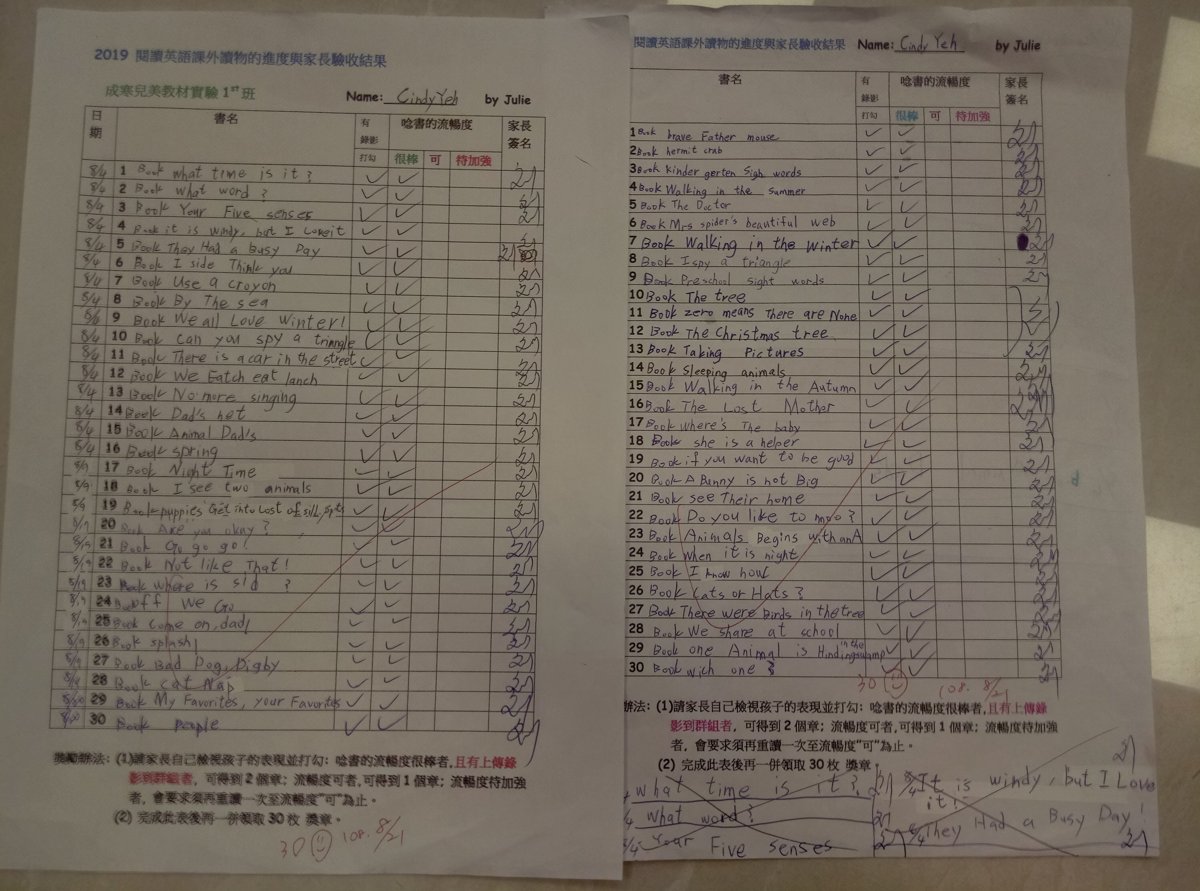 2019 閱讀英語課外讀物的進度與家長驗收結果
成寒兒美教材實驗 1st 班 Name: Cindy Yeh by Julie
日期 書名 有錄影打勾 唸書的流暢度 家長簽名
很棒 可 待加強
8/4 1 Book what time is it?
8/4 2 Book what word?
8/4 3 Book Your Five senses
8/4 4 Book it is windy, but I Love it
8/4 5 Book They Had a Busy Day
8/4 6 Book I side Think you
8/4 7 Book Use a crayon
8/4 8 Book By The sea
9 Book We all Love Winter!
8/4 10 Book can you spy a triangle
8/4 11 Book There is a car in the street
8/4 12 Book We Eatch eat lanch
8/4 13 Book No more singing
8/4 14 Book Dad's hat
8/4 15 Book Animal Dad's
8/4 16 Book spring
8/9 17 Book Night Time
8/9 18 Book I see two animals
8/9 19 Book puppies Get into Lost of
20 Book Are you okay?
8/19 21 Book Go go go!
8/19 22 Book Not like That!
8/19 23 Book where is sid ?
8/19 24 Book off We Go
8/19 25 Book come on, dad!
8/19 26 Book splash!
8/19 27 Book Bad Dog, Digby
8/19 28 Book cat Nap
8/20 29 Book My Favorites, your Favorites
8/20 30 Book people
獎勵辦法: (1)請家長自己檢視孩子的表現並打勾: 唸書的流暢度很棒者,且有上傳錄
影到群組者, 可得到 2 個章; 流暢度可者,可得到 1 個章; 流暢度待加強
者, 會要求須再重讀一次至流暢度"可"為止。
(2) 完成此表後再一併領取 30 枚 獎章。
30 108. 8/21
閱讀英語課外讀物的進度與家長驗收結果 Name: Cindy Yeh by Julie
書名 有錄影打勾 唸書的流暢度 家長簽名
很棒 可 待加強
1 Book brave Father mouse
2 Book hermit crab
3 Book kinder gerten Sigh words
4 Book Walking in the summer
5 Book The Doctor
6 Book Mrs spider's beautiful web
7 Book Walking in the winter
8 Book I spy a triangle
9 Book Preschool sight words
10 Book The tree
11 Book zero means There are None
12 Book The Christmas tree
13 Book Taking Pictures
14 Book sleeping animals
15 Book Walking in the Autumn
16 Book The Lost Mother
17 Book where's The baby
18 Book she is a helper
19 Book if you want to be good
20 Book A Bunny is not Big
21 Book see Their home
22 Book Do you like to ?
23 Book Animals Begins with an A
24 Book When it is night
25 Book I know how
26 Book Cats or Hats?
27 Book There were Birds in the tree
28 Book We share at school
29 Book one Animal is Hinding in the swamp
30 Book wich one
30 108. 8/21
辦法: (1)請家長自己檢視孩子的表現並打勾: 唸書的流暢度很棒者,且有上傳錄
影到群組者, 可得到 2 個章; 流暢度可者,可得到 1 個章; 流暢度待加強
者, 會要求須再重讀一次至流暢度"可"為止。
(2) 完成此表後再一併領取 30 枚 獎章
what time is it?
what word?
Your Five senses
8/4 It is windy, but I Love it!
8/4 They Had a Busy Day!